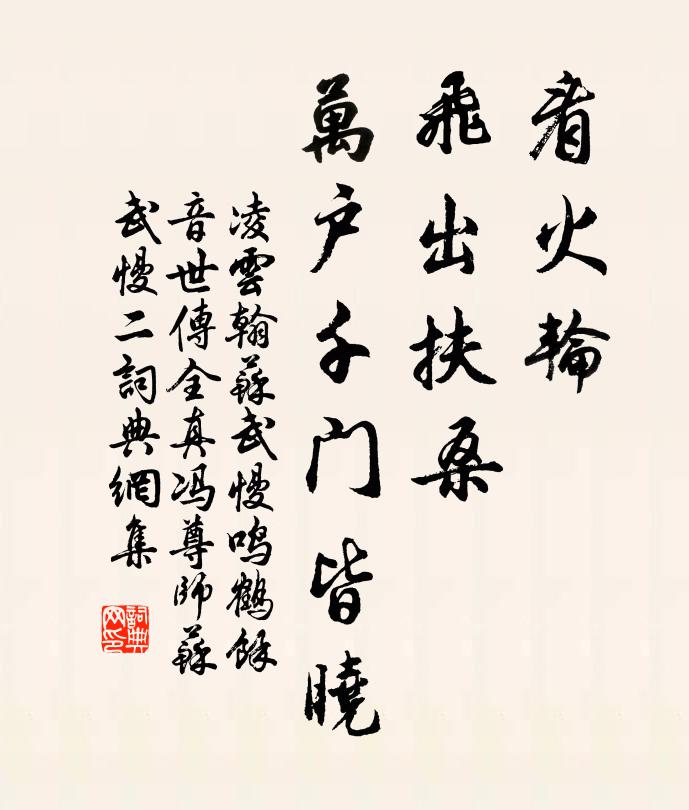 看火輪
飛出扶桑
萬户千門皆曉
凌雲翰蘇武慢鳴鶴餘
音世傳全真冯尊师蘇
武慢二詞典網集
詞典
网印